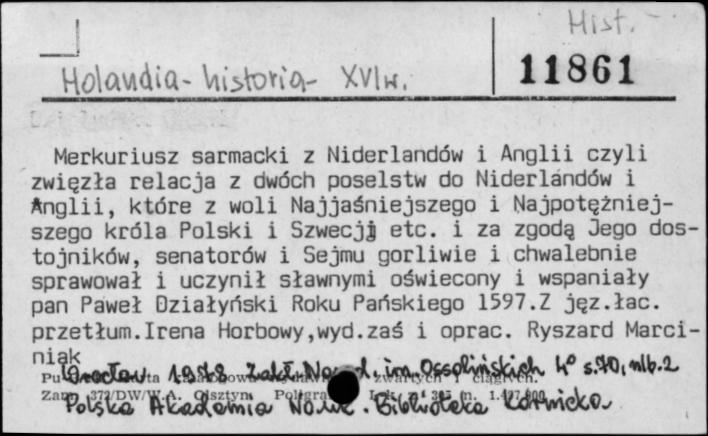 Hist.
Holandia - historia - XVI w.
11861
Merkuriusz sarmacki z Niderlandów i Anglii czyli
zwięzła relacja z dwóch poselstw do Niderlandów i
Anglii, które z woli Najjaśniejszego i Najpotężniej-
szego króla Polski i Szwecji etc. i za zgodą Jego dos-
tojników, senatorów i Sejmu gorliwie i chwalebnie
sprawował i uczynił sławnymi oświecony i wspaniały
pan Paweł Działyński Roku Pańskiego 1597.Z jęz.łac.
przetłum.Irena Horbowy,wyd.zaś i oprac. Ryszard Marci-
niak
Wrocław 1978 Zakł. Narod. im. Ossolińskich 4° s.70, nlb.2
zwartych i ciągłych.
Zam. 372/DW/W.A. Olsztyn.
Polska Akademia Nauk. Biblioteka Kórnicka